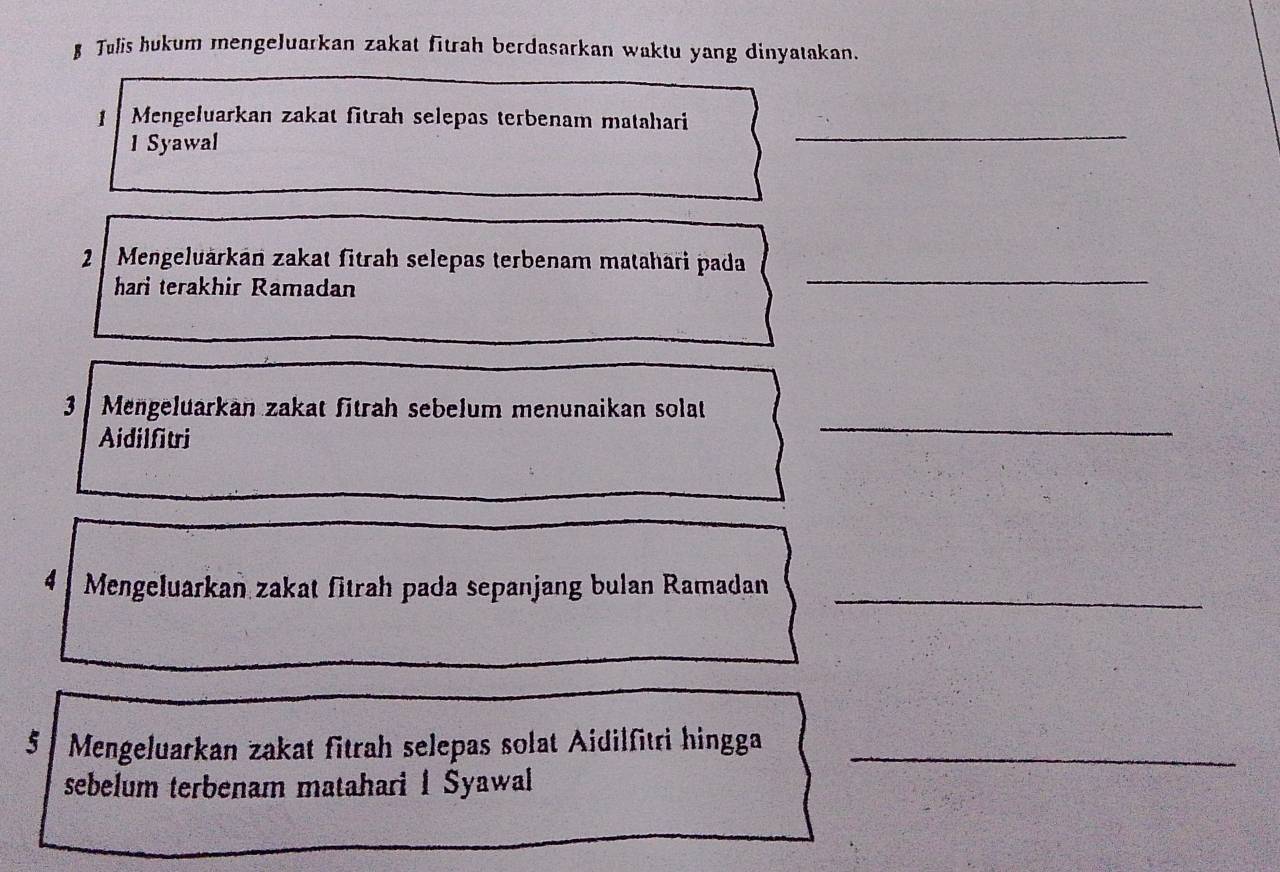 B Tulis hukum mengeluarkan zakat fitrah berdasarkan waktu yang dinyatakan.
1 Mengeluarkan zakat fitrah selepas terbenam matahari
1 Syawal
2 Mengeluarkan zakat fitrah selepas terbenam matahari pada
hari terakhir Ramadan
3 Mengeluarkan zakat fitrah sebelum menunaikan solat
Aidilfitri
4 Mengeluarkan zakat fitrah pada sepanjang bulan Ramadan
5 Mengeluarkan zakat fitrah selepas solat Aidilfitri hingga
sebelum terbenam matahari 1 Syawal